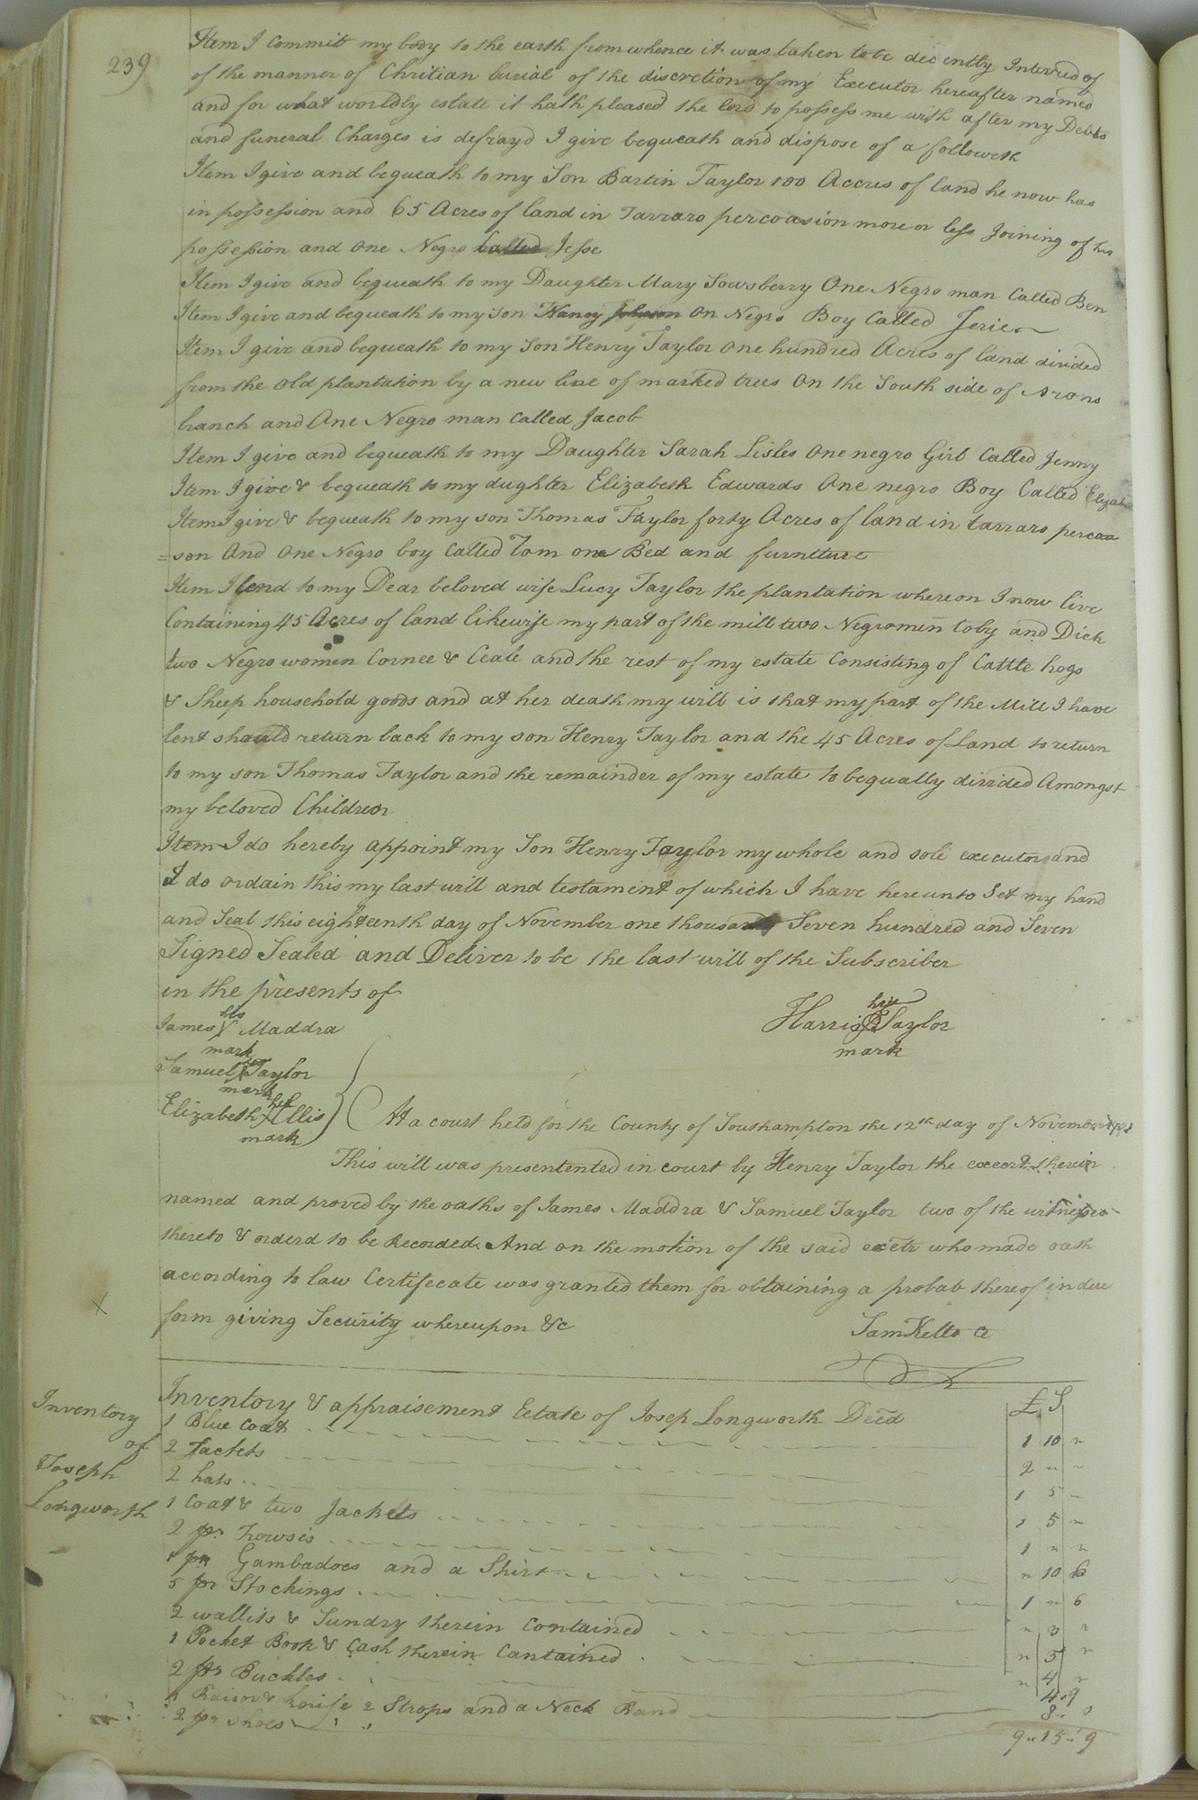 239
Item I Commit my body to the earth from whence it was taken to be decently Interred of
of the manner of Chritian burial of the discretion of my Executor hereafter named
and for what worldly estate it hath pleased the lord to possess me with after my Debts
and funeral Charges is defrayd I give bequeath and dispose of a followeth
Item I give and bequeath to my Son Bartin Taylor 100 Accres of land he now has
in possession and 65 Acres of land in Tarraro percoasion more or less Joining of his
possession and one Negro Called Jesse
Item I give and bequeath to my Daughter Mary Sowsberry One Negro man Called Ben
Item I give and bequeath to my son Nancy Johnson On Negro Boy Called Jerico
Item I give and bequeath to my Son Henry Taylor one hundred Acres of land divided
from the old plantation by a new line of marked trees On the South side of Arons
branch and One Negro man called Jacob
Item I give and bequeath to my Daughter Sarah Lisles one negro Girl Called Jenny
Item I give & bequeath to my dughter Elizabeth Edwards One negro Boy Called
Item I give & bequeath to my son Thomas Taylor forty Acres of land in tarraro percoa
=son And One Negro boy Called Tom one Bed and furniture
Item I lend to my Dear beloved wife Lucy Taylor the plantation whereon I now live
Containing 45 Acres of land likewise my part of the mill two Negromen toby and Dick
two Negro women Cornee & Ceale and the rest of my estate Consisting of Cattle hogs
& Sheep household goods and at her death my will is that my part of the Mill I have
lent should return back to my son Henry Taylor and the 45 Acres of Land to return
to my son Thomas Taylor and the remainder of my estate to bequally divided Amongst
my beloved Children
Item I do hereby appoint my Son Henry Taylor my whole and sole executor and
I do ordain this my last will and testament of which I have hereunto Set my hand
and Seal this eighteenth day of November one thousand Seven hundred and Seven
Signed Sealed and Deliver to be the last will of the Subscriber
in the presents of
his
James Maddra
mark
his
Harris B Taylor
mark
Samuel Taylor
mark
Elizabeth Ellis
mark
At a court held for the County of Southampton the 12th day of November
This will was presentented in court by Henry Taylor the execor therein
named and proved by the oaths of James Maddra & Samuel Taylor two of the witnesses
thereto & orderd to be Recorded. And on the motion of the said exetr who made oath
according to law Certifecate was granted them for obtaining a probab thereof in due
form giving Security whereupon &c
Sam Kello C
X
Inventory
of
Joseph
Longworth
Inventory & appraisement Estate of Josep Longworth Deed
£ S
1 Blue Coat 1 10 "
2 Jackets 2 " "
2 hats 1 5 "
1 Coat & two Jackets 1 5 "
2 pr Trowsis 1 " "
1 pr Gambadoes and a Shirt " 10 6
5 pr Stockings 1 " 6
2 wallits & Sundry therein Contained " 3 "
1 Pocket Book & Cash therein Contained " 5 "
2 pr Buckles " 4 "
1 Raisor & knife 2 Strops and a Neck Band 4 9
2 pr Shoes 8 " 0
9 " 15 " 9